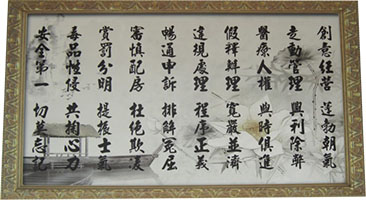 創意經營 蓬勃朝氣
走動管理 興利除弊
醫療人權 與時俱進
假釋辦理 寬嚴並濟
違規處理 程序正義
暢通申訴 排解冤屈
審慎配房 杜絕欺凌
賞罰分明 提振士氣
毒品性侵 共掬心力
安全第一 切莫忘記